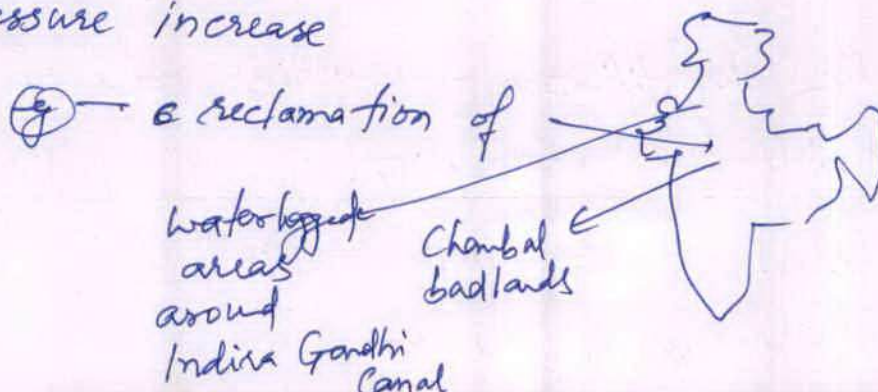 ssure increase
eg — reclamation of
waterlogged
areas
around
Indira Gandhi
Canal
Chambal
badlands